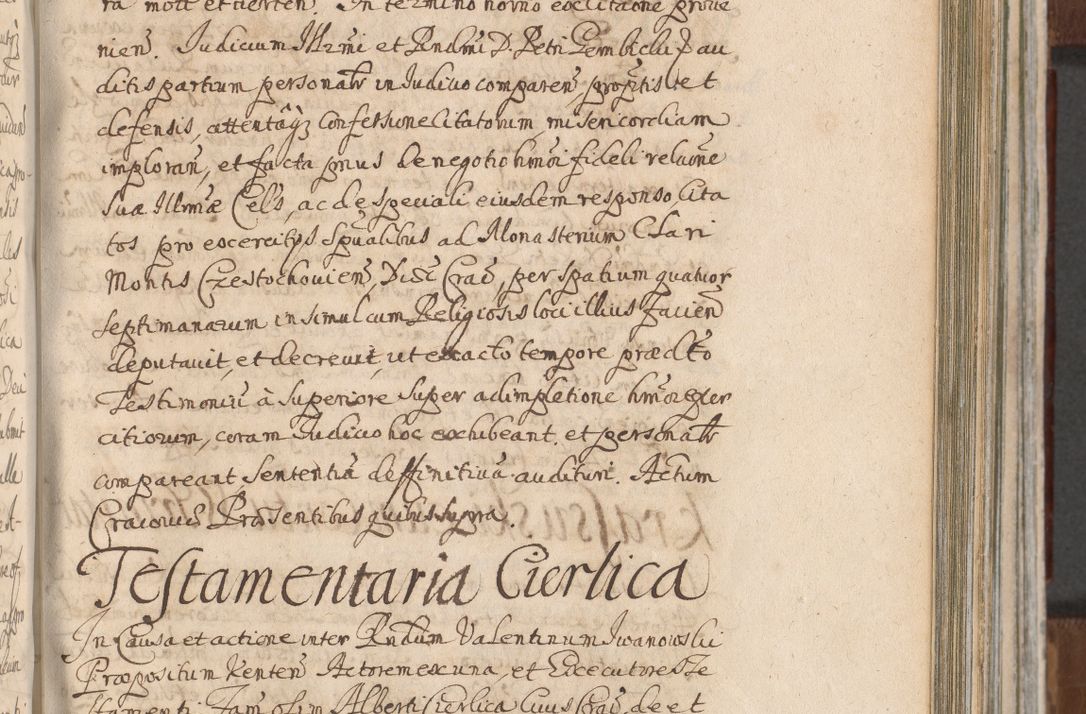 ra mott et uerten. In termino horno ex citaone prove
nien. Iudicium Illrmi et Rndmi D. Petri Gembicki J au
ditis partium personalr in Iudicio comparen, proptis et
defensis, attentaqz Confessione Citatorum, misericordiam
imploran, et facta prius de negotio hmoi fideli relaone
Suæ Illrmæ Cels, ac de speciali eiusdem responso, Cita
tos pro exercitijs Spualibus ad Monasterium Clari
Montis Czestochouien, Diæc Crac, per spatium quatuor
septimanarum insimul cum Religiosis loci illius facien
deputauit, et decreuit, ut exacto tempore prædcto
Testimoniu à superiore super adimpletione hmoi exer
citiorum, coram Iudicio hoc exhibeant, et personalr
compareant, Sententiã deffinitiuã audituri. Actum
Cracouiæ Præsentibus quibus supra.
Testamentaria Cierlica
In Causa et actione inter Rndum Valentinum Iwanowski
Præpositum Kenten Actorem ex una, et Executores Te
stamenti Fam olim Alberti Cierlica Ciuis Crac, de et